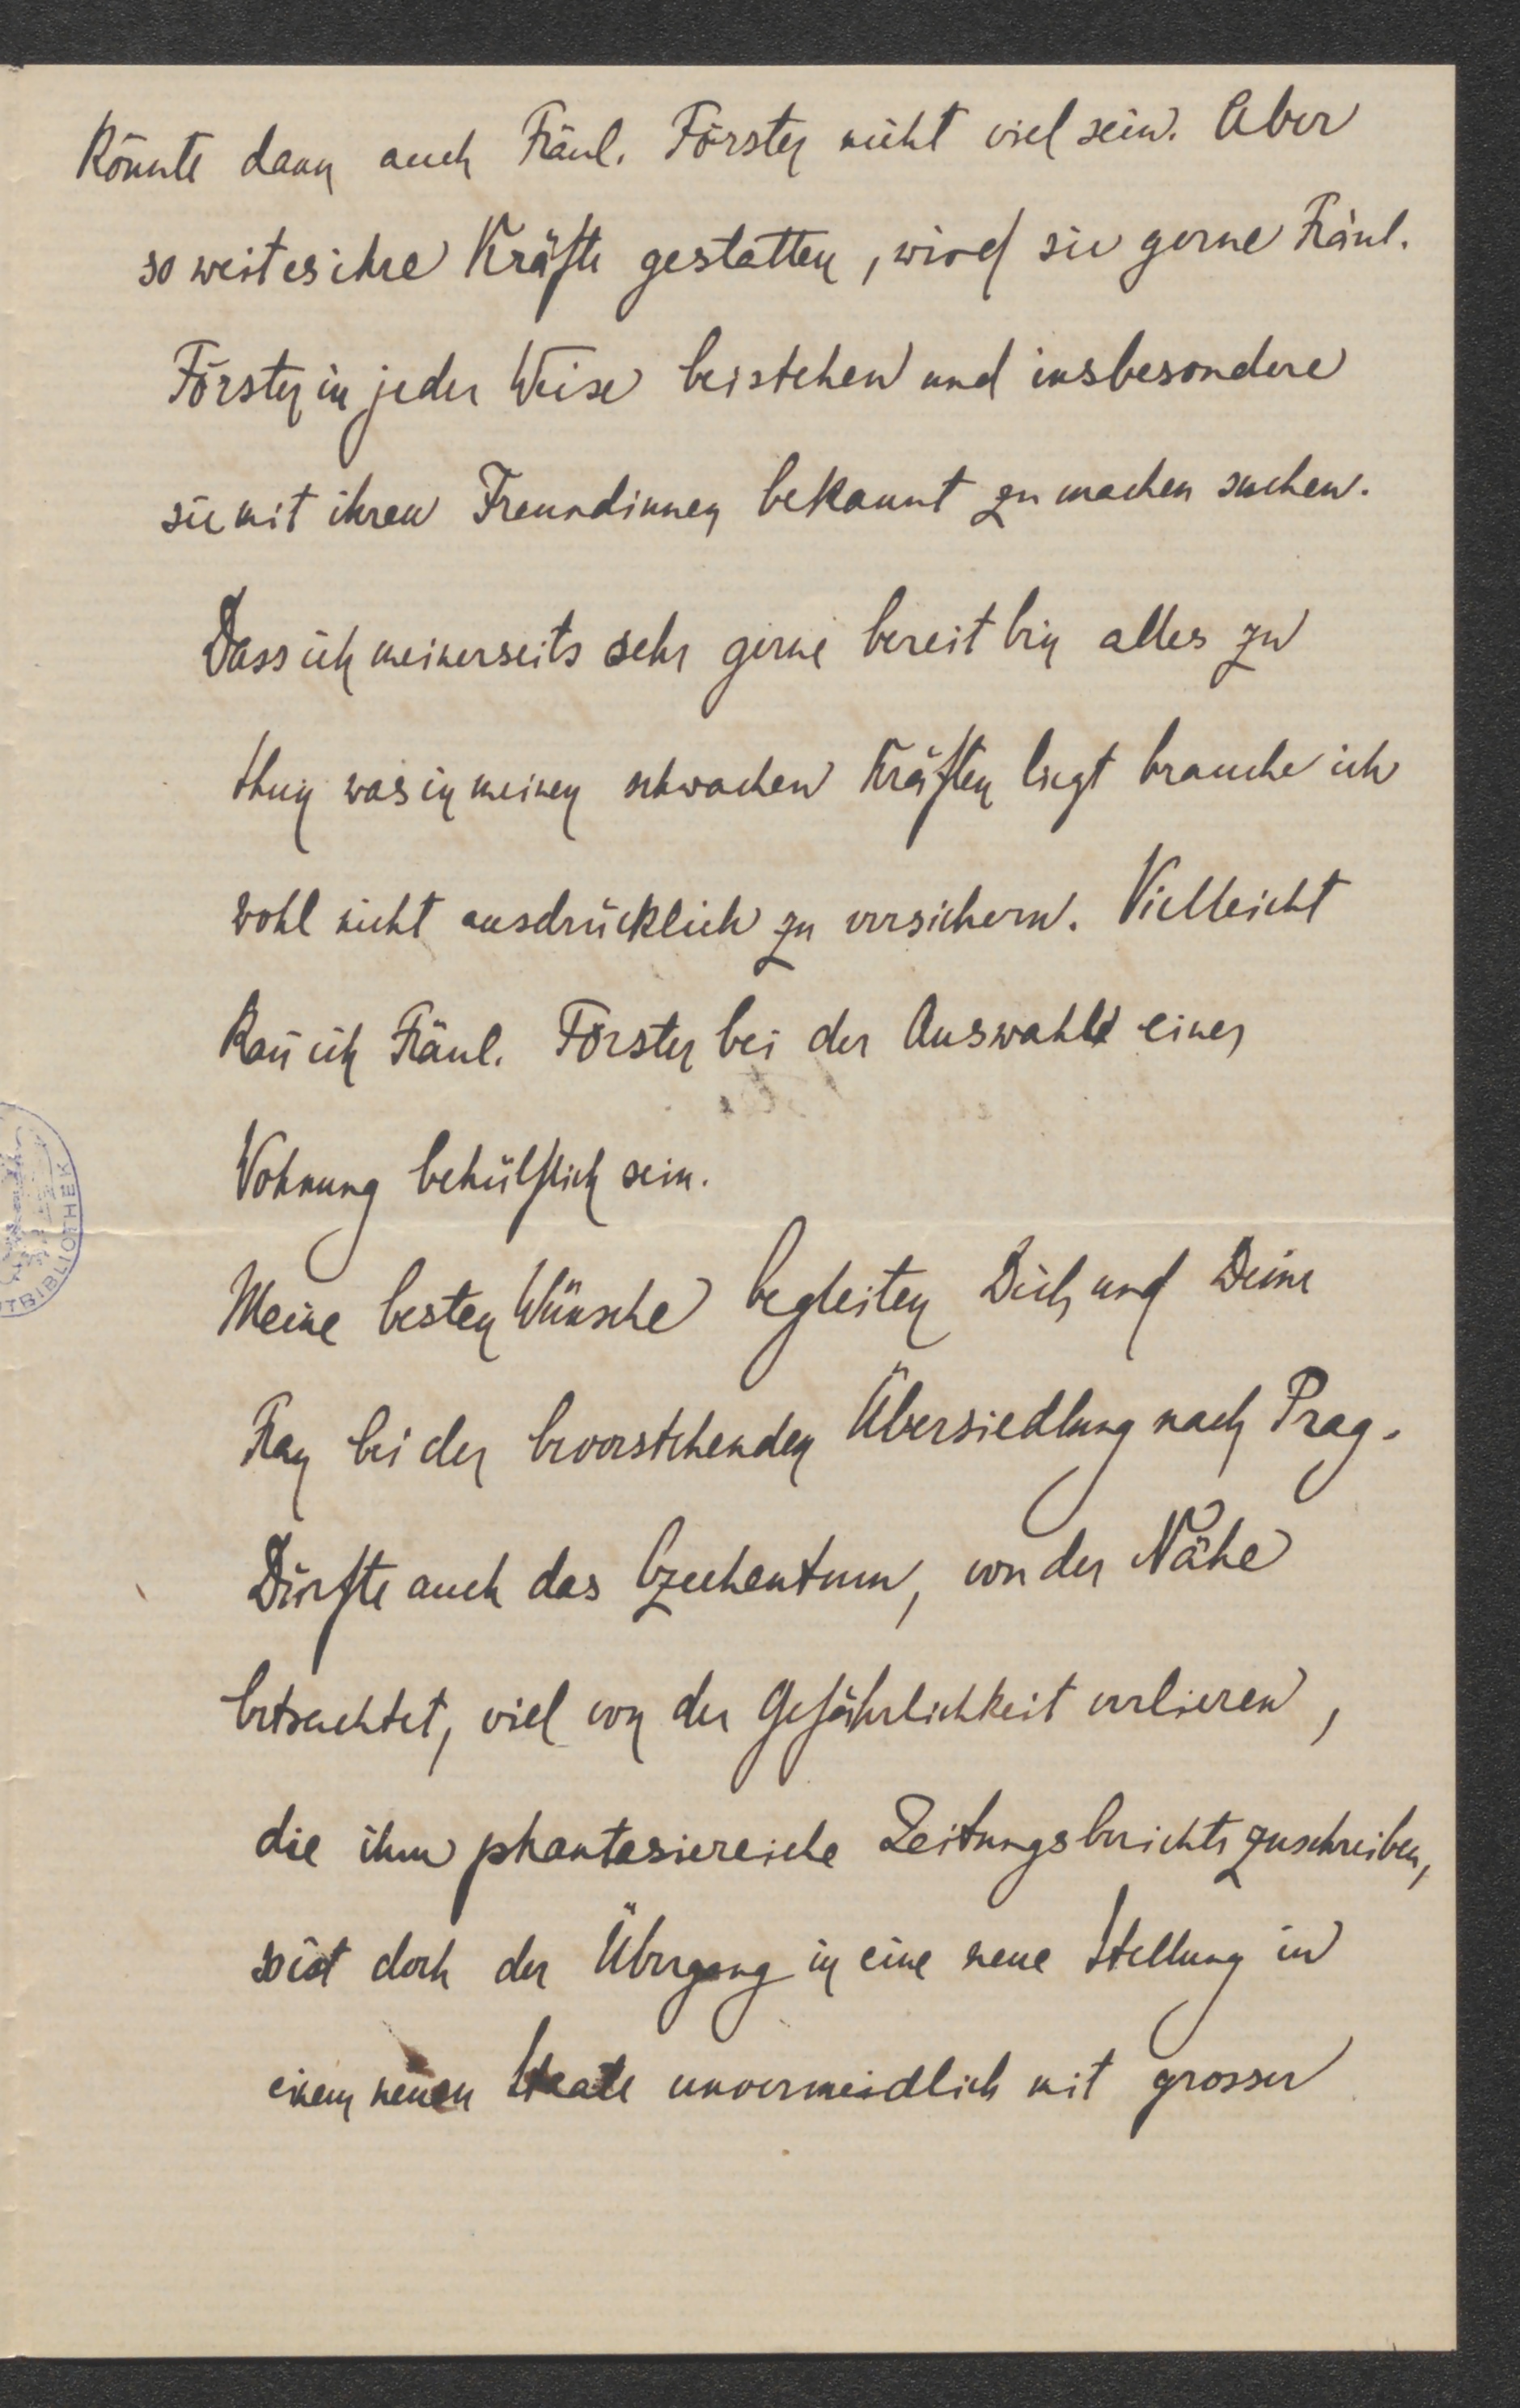 könnte dann auch Fräul. Förster nicht viel sein. Aber
so weit es ihre Kräfte gestatten, wird sie gerne Fräul.
Förster in jeder Weise beistehen und insbesondere
sie mit ihren Freundinnen bekannt zu machen suchen.
Dass ich meinerseits sehr gerne bereit bin alles zu
thun was in meinen schwachen Kräften liegt brauche ich
wohl nicht ausdrücklich zu versichern. Vielleicht
kañ ich Fräul. Förster bei der Auswahl einer
Wohnung behülflich sein.
Meine besten Wünsche begleiten Dich und Deine
Frau bei der bevorstehenden Übersiedlung nach Prag.
Dürfte auch das Czechentum, von der Nähe
betrachtet, viel von der Gefährlichkeit verlieren,
die ihm phantasiereiche Zeitungsberichte zuschreiben,
so ist doch der Übergang in eine neue Stellung in
einem neuen Staate unvermeidlich mit grosser
TBIBLIOTHEK